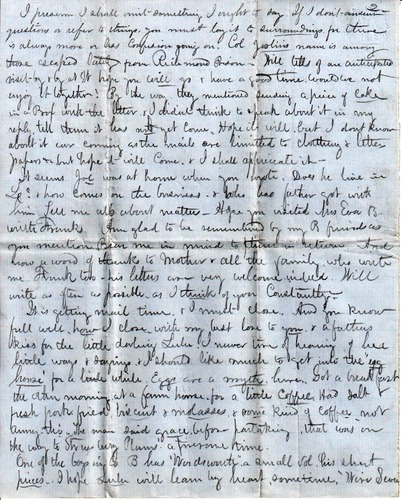 2
I presume I shall omit something I ought to say. If I don't answer
questions or refer to things, you must lay it to surroundings for there
is always more or less confusion going on. Col name is among
those escaped lately from Richmond Prison - Will tells of an anticipated
visit by & by at W hope you will go & have a good time. Would we not
enjoy it together! By the way they mentioned sending a piece of cake
in a Box with the letter, & I didn't think to speak about it in any
reply, tell them it has not yet come. Hope it will, but I don't know
about it ever coming as the mails are limited to clothing & letter
paper & but hope it will come. & I shall appreciate it -
It seems Joe was at home when you wrote. Does he live in
& how comes on the business. & Who has father got with
him Tell me all about matters - Hope you visited Mrs Eva B.
with Frank. Am glad to be remembered by my B friends as
you mention Bear me in mind to them in return. And
how a word of thanks to Mother & all the family who write
me. Frank too - his letters are very welcome indeed Will
write as often as possible. as I think of you Constantly -
It is getting mail time. & I must close. And you know
full well how I close. with my best love to you & a fathers
kiss for the little darling Lulu I never tire of hearing of her
little ways & sayings & I should like much to get into the "egg
house" for a little while Eggs are a myth here. Got a breakfast
the other morning at a farm house, for a little Coffee. Had Salt
fresh pork fried, biscuit & molasses, & some kind of Coffee not
The man said grace before partaking, that was on
the way to
One of the boys in Co B has Wordsworth, a small vol. his short
pieces. I hope Lulu will learn by heart sometime, "We are Seven